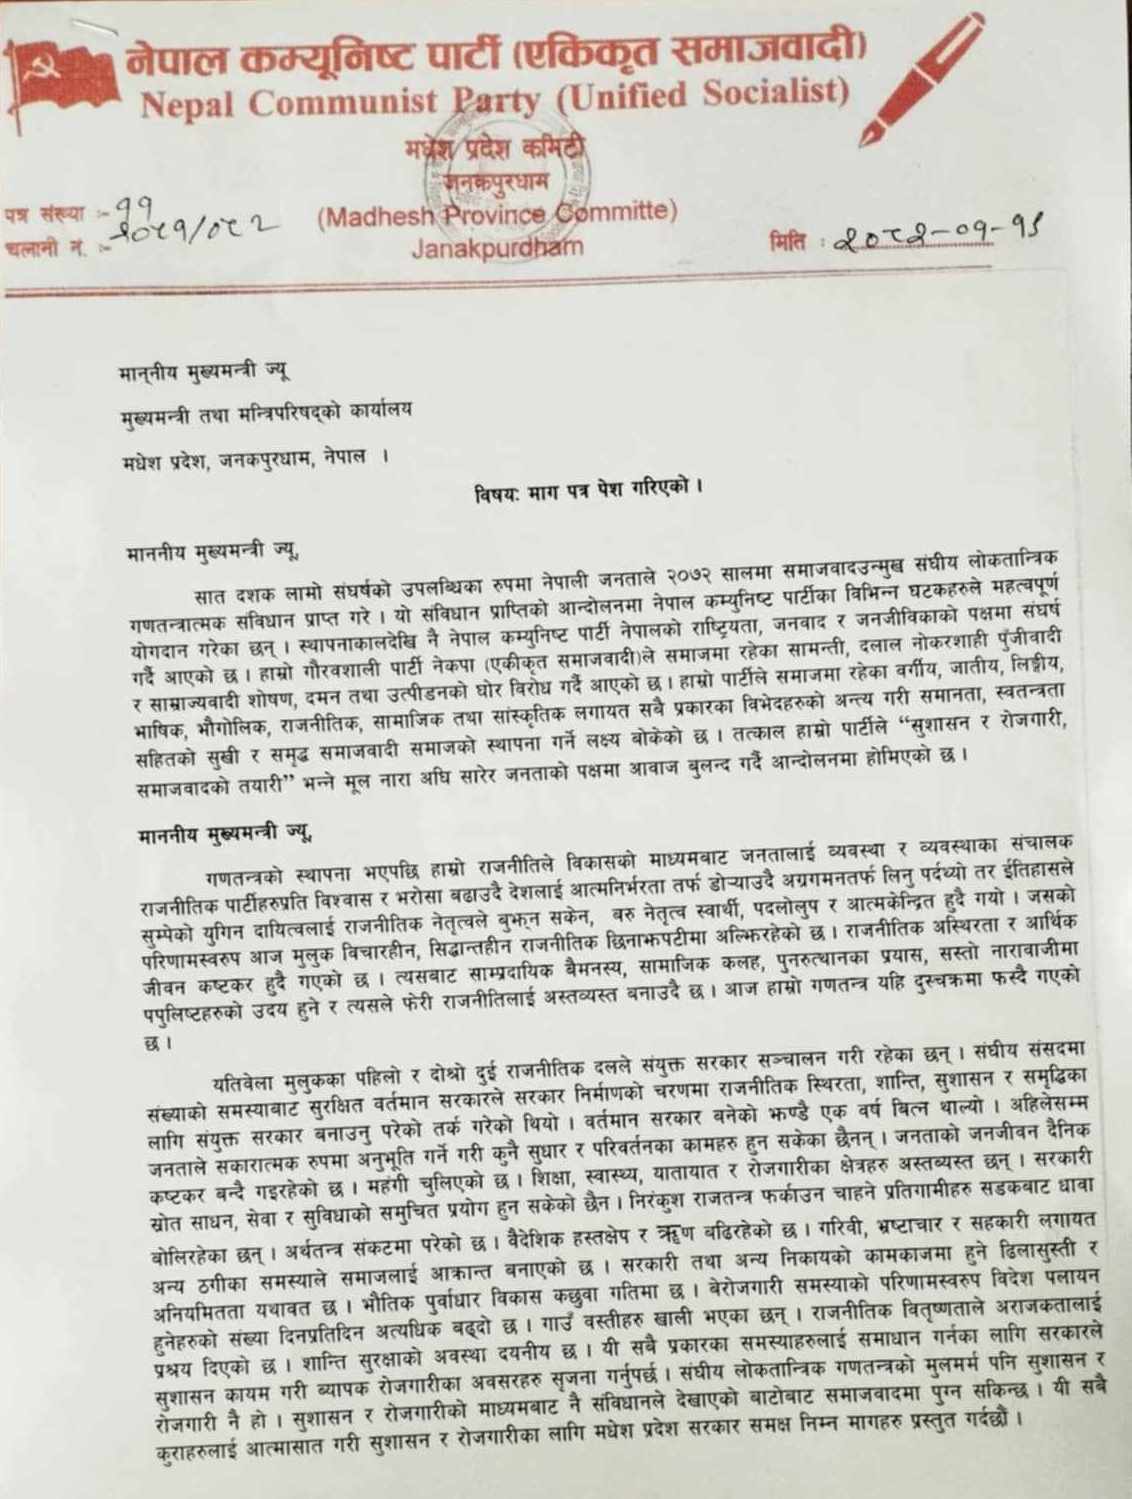 नेपाल कम्यूनिष्ट पार्टी (एकिकृत समाजवादी)
Nepal Communist Party (Unified Socialist)
मधेश प्रदेश कमिटी
जनकपुरधाम
पत्र संख्या :- ११
(Madhesh Province Committe)
चलानी नं. :- २०८१/०८२
Janakpurdham
मिति : २०८२-०१-१९
माननीय मुख्यमन्त्री ज्यू
मुख्यमन्त्री तथा मन्त्रिपरिषद्को कार्यालय
मधेश प्रदेश, जनकपुरधाम, नेपाल ।
विषय: माग पत्र पेश गरिएको ।
माननीय मुख्यमन्त्री ज्यू,
सात दशक लामो संघर्षको उपलब्धिका रुपमा नेपाली जनताले २०७२ सालमा समाजवादउन्मुख संघीय लोकतान्त्रिक
गणतन्त्रात्मक संविधान प्राप्त गरे । यो संविधान प्राप्तिको आन्दोलनमा नेपाल कम्युनिष्ट पार्टीका विभिन्न घटकहरुले महत्वपूर्ण
योगदान गरेका छन् । स्थापनाकालदेखि नै नेपाल कम्युनिष्ट पार्टी नेपालको राष्ट्रियता, जनवाद र जनजीविकाको पक्षमा संघर्ष
गर्दै आएको छ । हाम्रो गौरवशाली पार्टी नेकपा (एकीकृत समाजवादी)ले समाजमा रहेका सामन्ती, दलाल नोकरशाही पुँजीवादी
र साम्राज्यवादी शोषण, दमन तथा उत्पीडनको घोर विरोध गर्दै आएको छ । हाम्रो पार्टीले समाजमा रहेका वर्गीय, जातीय, लिङ्गीय,
भाषिक, भौगोलिक, राजनीतिक, सामाजिक तथा सांस्कृतिक लगायत सबै प्रकारका विभेदहरुको अन्त्य गरी समानता, स्वतन्त्रता
सहितको सुखी र समृद्ध समाजवादी समाजको स्थापना गर्ने लक्ष्य बोकेको छ । तत्काल हाम्रो पार्टीले “सुशासन र रोजगारी,
समाजवादको तयारी” भन्ने मूल नारा अघि सारेर जनताको पक्षमा आवाज बुलन्द गर्दै आन्दोलनमा होमिएको छ ।
माननीय मुख्यमन्त्री ज्यू,
गणतन्त्रको स्थापना भएपछि हाम्रो राजनीतिले विकासको माध्यमबाट जनतालाई व्यवस्था र व्यवस्थाका संचालक
राजनीतिक पार्टीहरुप्रति विश्वास र भरोसा बढाउदै देशलाई आत्मनिर्भरता तर्फ डोऱ्याउदै अग्रगमनतर्फ लिनु पर्दथ्यो तर ईतिहासले
सुम्पेको युगिन दायित्वलाई राजनीतिक नेतृत्वले बुझ्न सकेन, बरु नेतृत्व स्वार्थी, पदलोलुप र आत्मकेन्द्रित हुदै गयो । जसको
परिणामस्वरुप आज मुलुक विचारहीन, सिद्धान्तहीन राजनीतिक छिनाझपटीमा अल्झिरहेको छ । राजनीतिक अस्थिरता र आर्थिक
जीवन कष्टकर हुदै गएको छ । त्यसबाट साम्प्रदायिक बैमनस्य, सामाजिक कलह, पुनरुत्थानका प्रयास, सस्तो नारावाजीमा
पपुलिष्टहरुको उदय हुने र त्यसले फेरी राजनीतिलाई अस्तव्यस्त बनाउदै छ । आज हाम्रो गणतन्त्र यहि दुस्चक्रमा फस्दै गएको
छ ।
यतिवेला मुलुकका पहिलो र दोश्रो दुई राजनीतिक दलले संयुक्त सरकार सञ्चालन गरी रहेका छन् । संघीय संसदमा
संख्याको समस्याबाट सुरक्षित वर्तमान सरकारले सरकार निर्माणको चरणमा राजनीतिक स्थिरता, शान्ति, सुशासन र समृद्धिका
लागि संयुक्त सरकार बनाउनु परेको तर्क गरेको थियो । वर्तमान सरकार बनेको झण्डै एक वर्ष बित्न थाल्यो । अहिलेसम्म
जनताले सकारात्मक रुपमा अनुभूति गर्ने गरी कुनै सुधार र परिवर्तनका कामहरु हुन सकेका छैनन् । जनताको जनजीवन दैनिक
कष्टकर बन्दै गइरहेको छ । महंगी चुलिएको छ । शिक्षा, स्वास्थ्य, यातायात र रोजगारीका क्षेत्रहरु अस्तव्यस्त छन् । सरकारी
स्रोत साधन, सेवा र सुविधाको समुचित प्रयोग हुन सकेको छैन । निरंकुश राजतन्त्र फर्काउन चाहने प्रतिगामीहरु सडकबाट धावा
बोलिरहेका छन् । अर्थतन्त्र संकटमा परेको छ । वैदेशिक हस्तक्षेप र ऋण बढिरहेको छ । गरिवी, भ्रष्टाचार र सहकारी लगायत
अन्य ठगीका समस्याले समाजलाई आक्रान्त बनाएको छ । सरकारी तथा अन्य निकायको कामकाजमा हुने ढिलासुस्ती र
अनियमितता यथावत छ । भौतिक पुर्वाधार विकास कछुवा गतिमा छ । बेरोजगारी समस्याको परिणामस्वरुप विदेश पलायन
हुनेहरुको संख्या दिनप्रतिदिन अत्यधिक बढ्दो छ । गाउँ वस्तीहरु खाली भएका छन् । राजनीतिक वितृष्णताले अराजकतालाई
प्रश्रय दिएको छ । शान्ति सुरक्षाको अवस्था दयनीय छ । यी सबै प्रकारका समस्याहरुलाई समाधान गर्नका लागि सरकारले
सुशासन कायम गरी ब्यापक रोजगारीका अवसरहरु सृजना गर्नुपर्छ । संघीय लोकतान्त्रिक गणतन्त्रको मुलमर्म पनि सुशासन र
रोजगारी नै हो । सुशासन र रोजगारीको माध्यमबाट नै संविधानले देखाएको बाटोबाट समाजवादमा पुग्न सकिन्छ । यी सबै
कुराहरुलाई आत्मासात गरी सुशासन र रोजगारीका लागि मधेश प्रदेश सरकार समक्ष निम्न मागहरु प्रस्तुत गर्दछौं ।